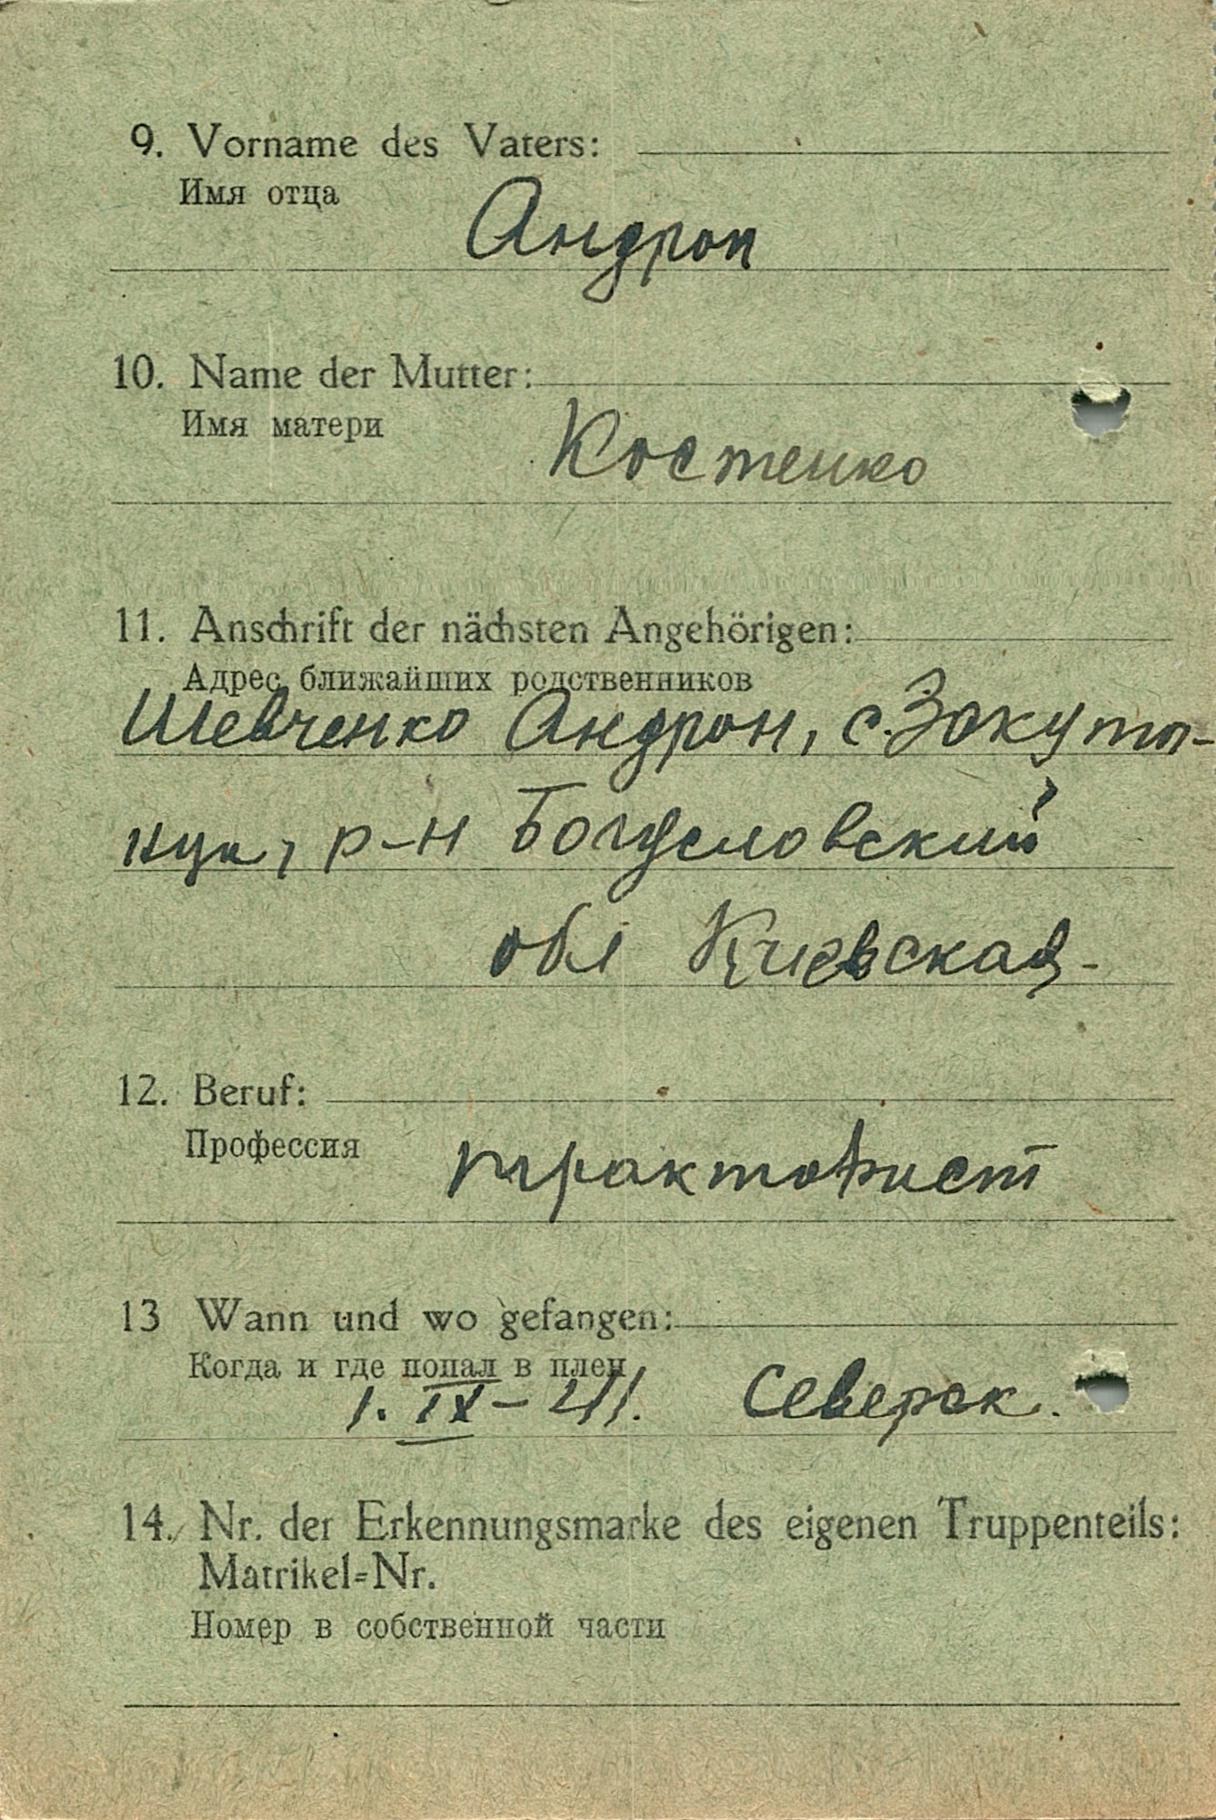 9. Vorname des Vaters:
Имя отца
Андрон
10. Name der Mutter:
Имя матери
Костенко
11. Anschrift der nächsten Angehörigen:
Адрес ближайших родственников
Шевченко Андрон, с. Закуты-
нця, р-н Богусловский
обл Киевская-
12. Beruf:
Профессия
тракторист
13 Wann und wo gefangen:
Когда и где попал в плен
1. IX – 41. Северск.
14. Nr. der Erkennungsmarke des eigenen Truppenteils:
Matrikel-Nr.
Номер в собственной части